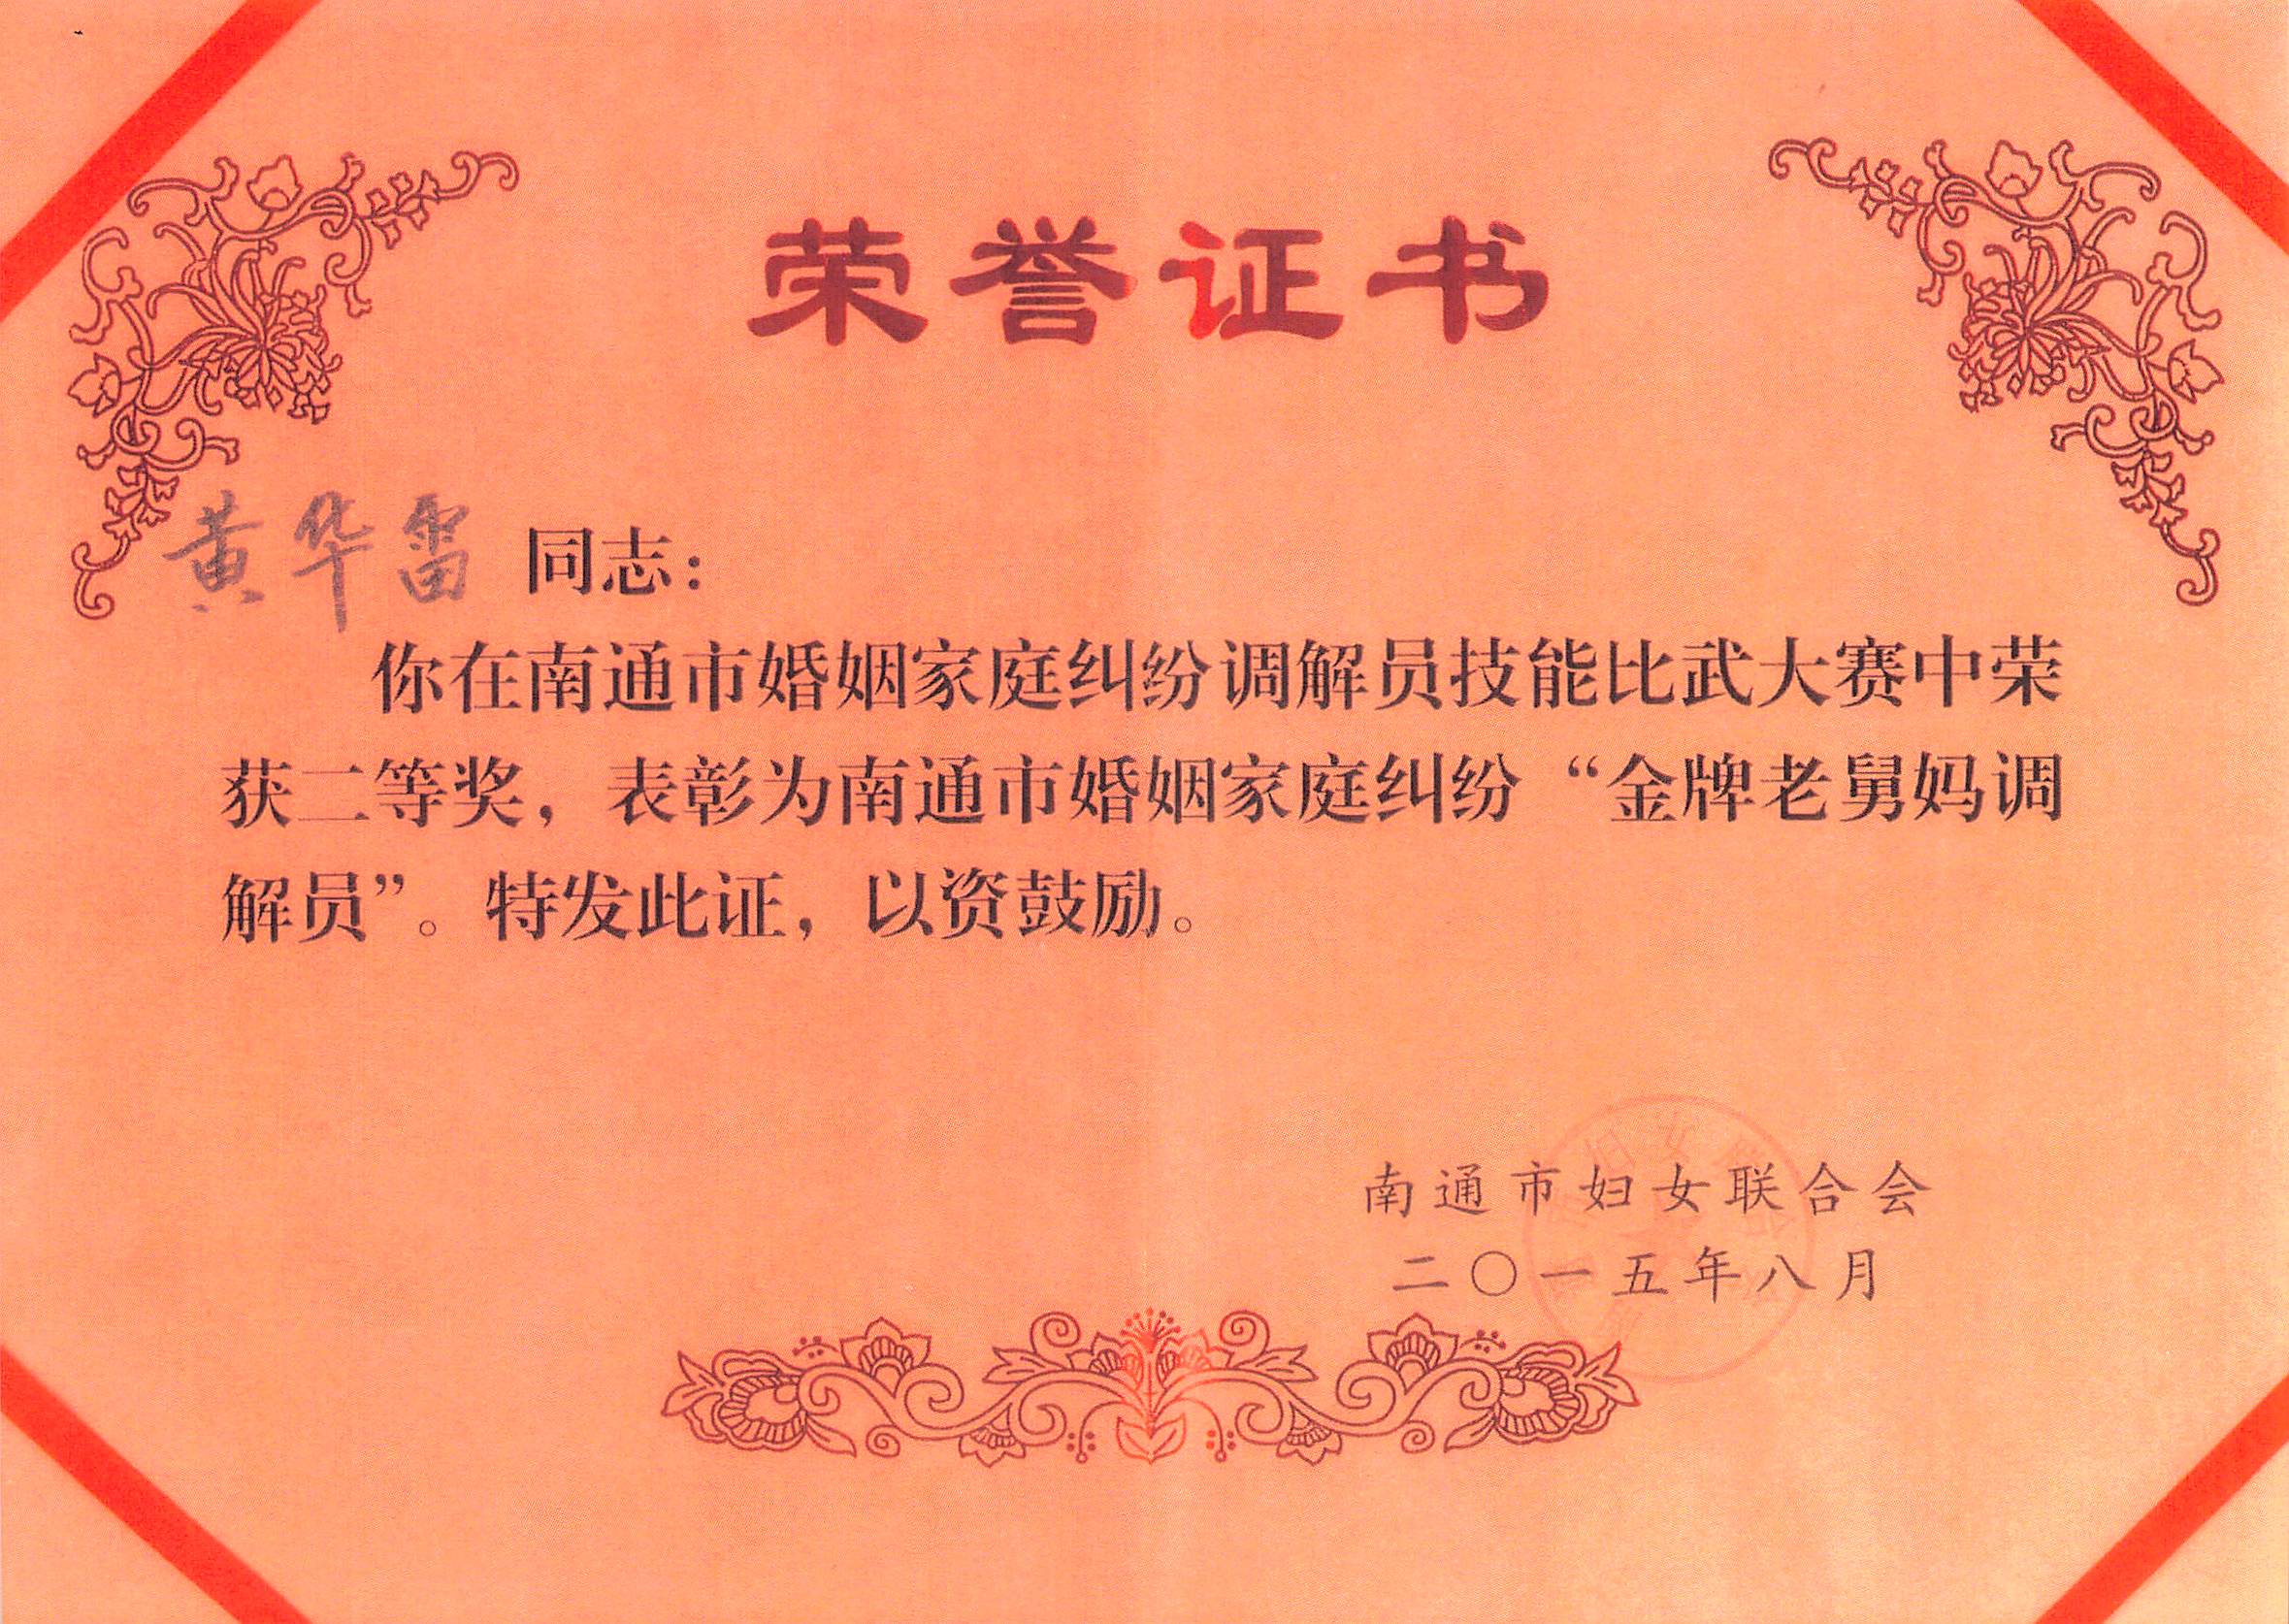 荣誉证书
黄华雷 同志：
你在南通市婚姻家庭纠纷调解员技能比武大赛中荣
获二等奖，表彰为南通市婚姻家庭纠纷“金牌老舅妈调
解员”。特发此证，以资鼓励。
南通市妇女联合会
二〇一五年八月